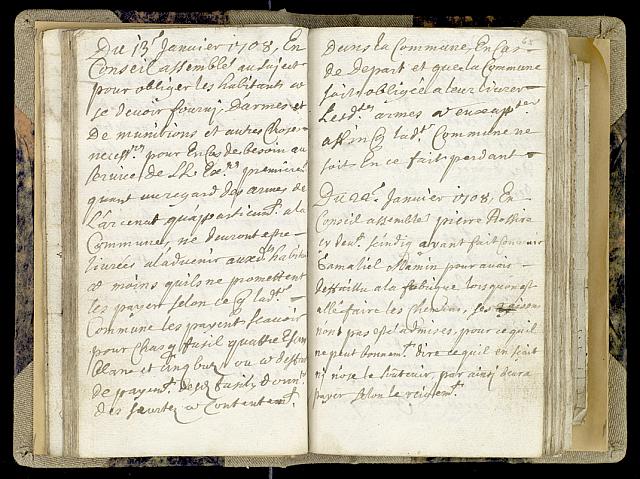 Du 13e. Janvier 1708, En
Conseil assemblé au sujet
pour obliger les habitants a
se devoir fourni, d'armes et
De munitions et autres Choses
necess.res pour En Cas de besoin au
Service de LL Ex.ces premierem.t
quant au regard des armes de
L'arcenat qu'a particum.t a la
Commune, ne devront estre
livrée a l'advenir auxds habita
a moins quils ne promettent
les payer selon ce q lad.te
Commune les payent scavoir
pour Chasq fusil quattre Escus
blanc et Cinq butz ou a deffaut
de payem.t desd. fusil, donn.t
des seurtez a Contentem.t
65
Dans la Commune, En Cas
de Depart et que la Commune
soit obligée a leur livrer
Lesd.tes armes
affin q lad.te Commune ne
soit En ce fait perdant
Du 22e. Janvier 1708, En
Conseil assemblé pierre
sindiq ayant fait Convenir
Gamaliel Mamin pour avoir
deffailli a la fabrique lors quon est
allé faire les chemins, ses raisons
nont pas esté admises, pour ce quil
ne peut bonnem.t dire ce quil en soait
ni n'ose le soutenir, par ainsi devra
payer selon le reiglem.t